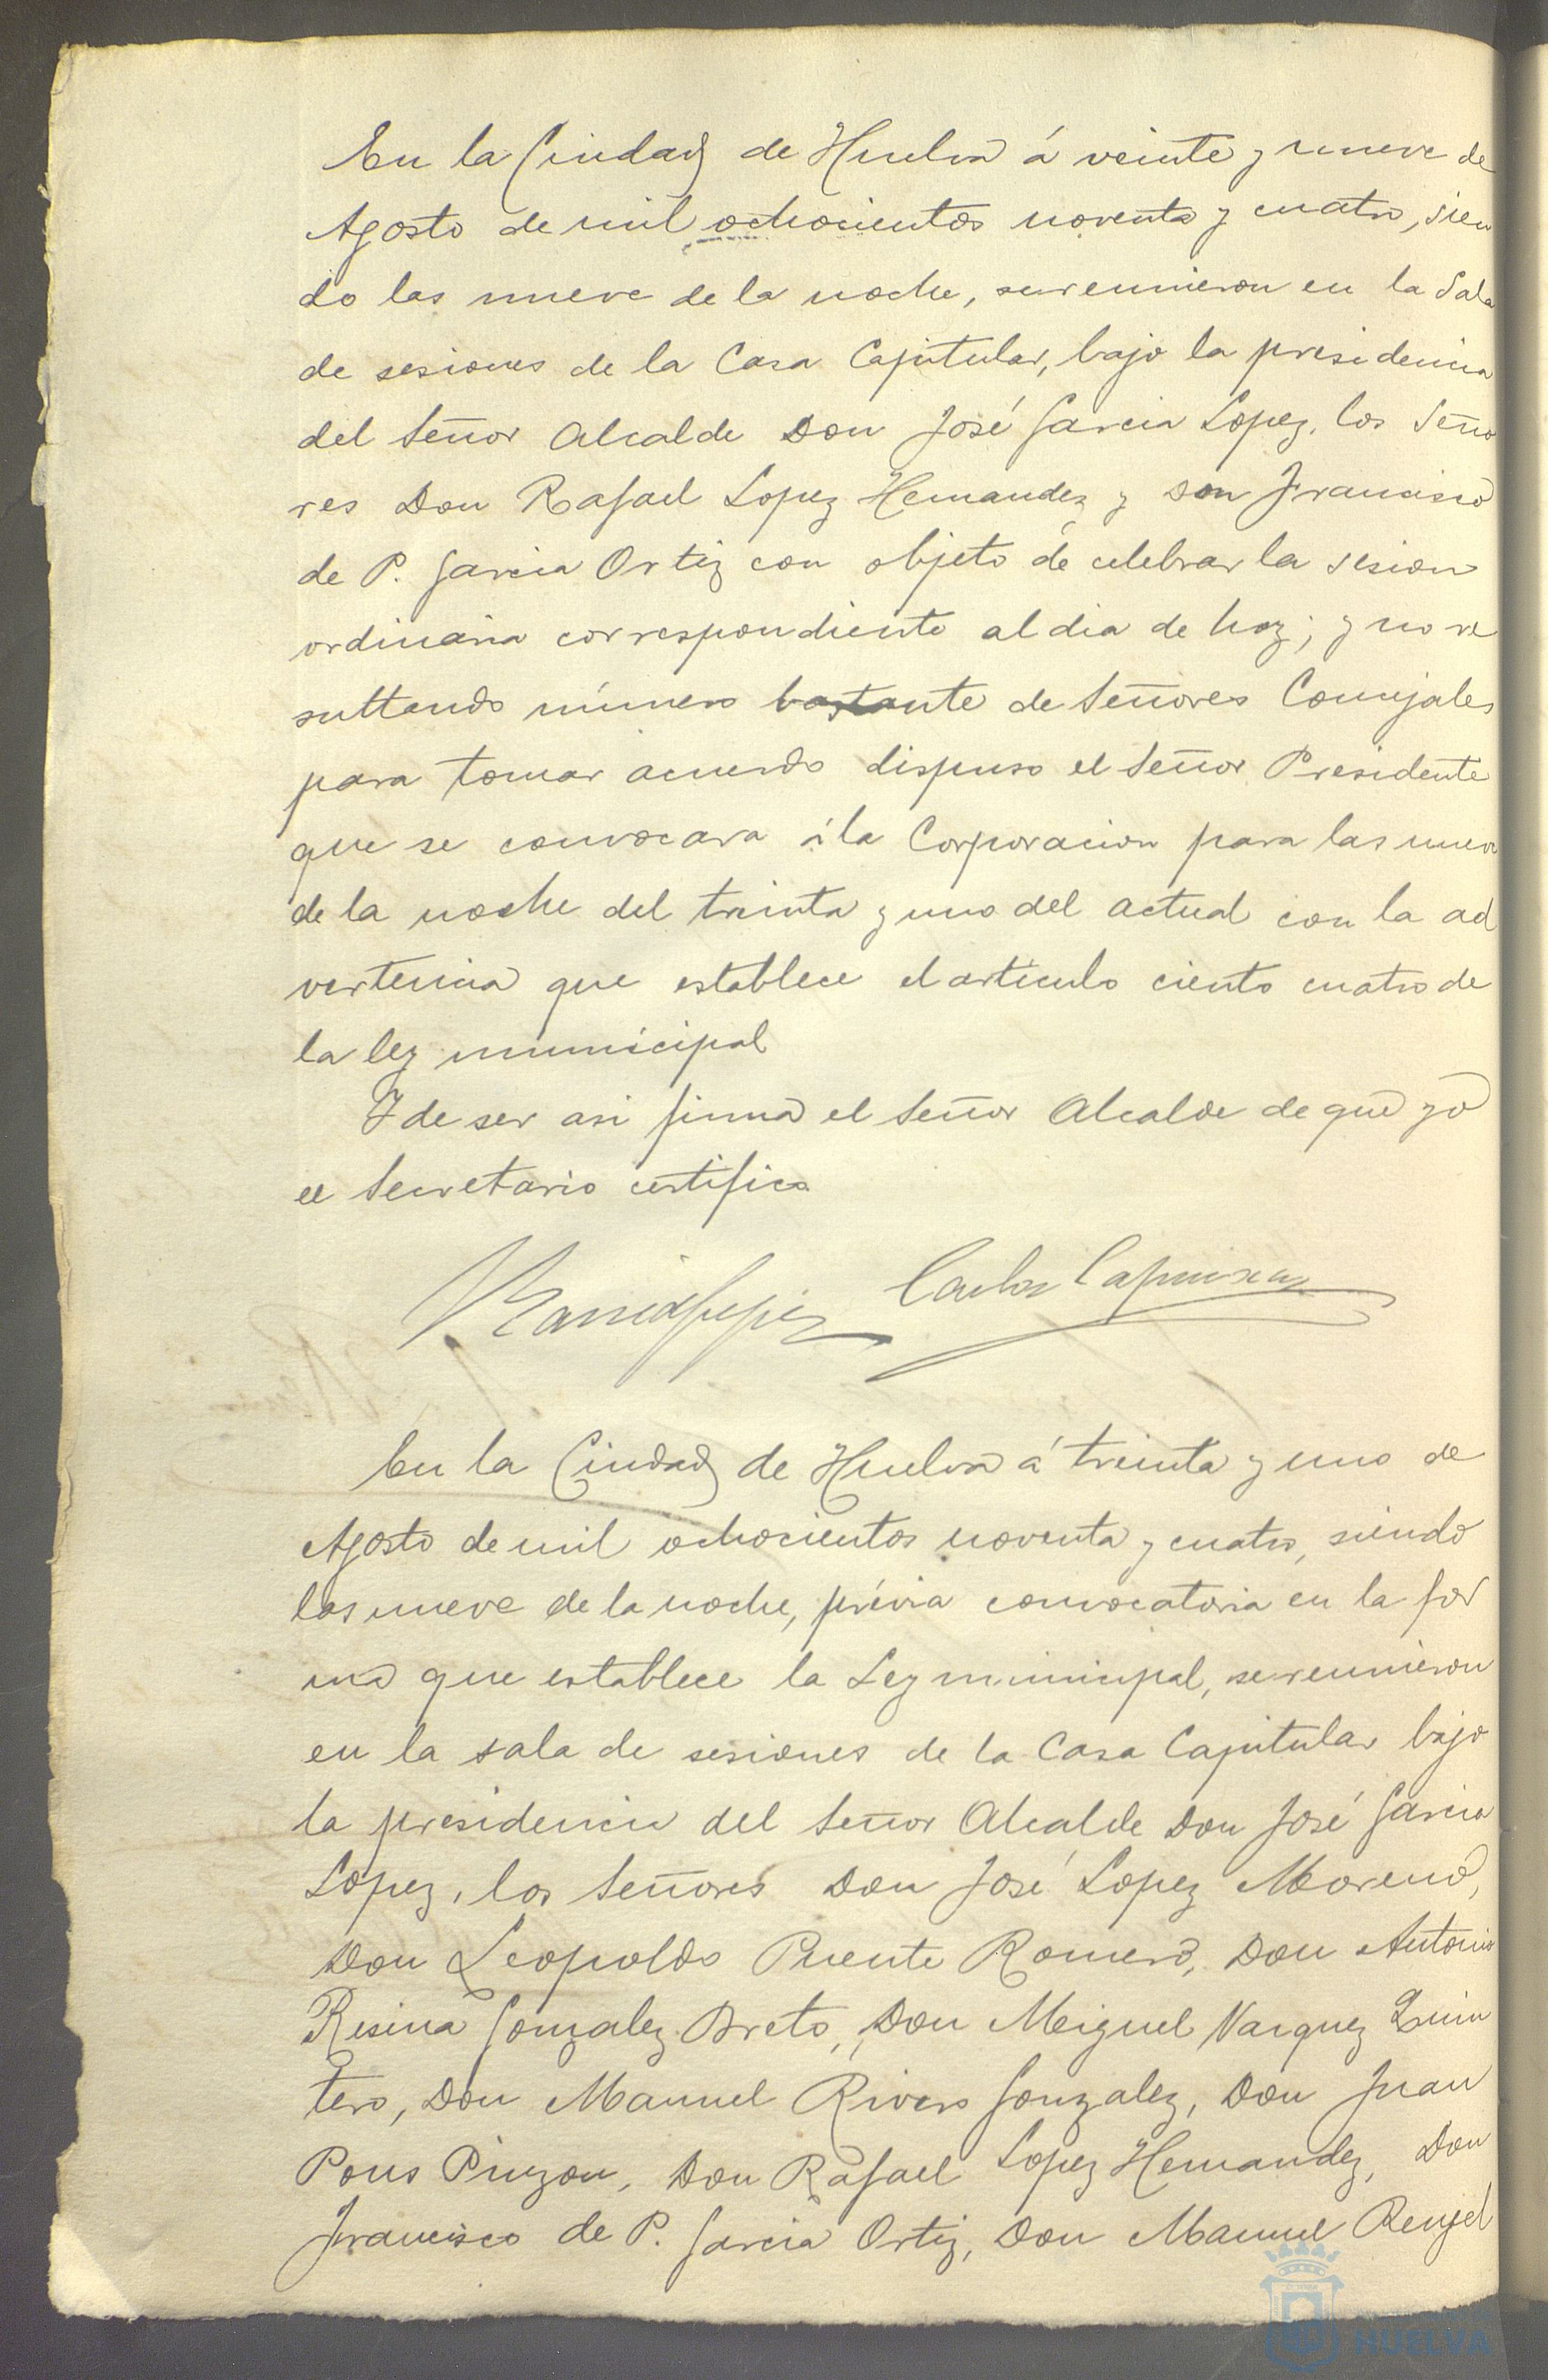 En la Ciudad de Huelva á veinte y nueve de
Agosto de mil ochocientos noventa y cuatro, sien
do las nueve de la noche, se reunieron en la Sala
de sesiones de la Casa Capitular, bajo la presidencia
del Señor Alcalde Don José Garcia Lopez, los Seño
res Don Rafael Lopez Hernandez y Don Francisco
de P. Garcia Ortiz con objeto de celebrar la sesion
ordinaria correspondiente al dia de hoy; y no re
sultando número bastante de Señores Concejales
para tomar acuerdo dispuso el Señor Presidente
que se convocara á la Corporacion para las nueve
de la noche del treinta y uno del actual con la ad
vertencia que establece el artículo ciento cuatro de
la ley municipal
Y de ser asi firma el Señor Alcalde de que yo
el Secretario certifico
Carlos
En la Ciudad de Huelva á treinta y uno de
Agosto de mil ochocientos noventa y cuatro, siendo
las nueve de la noche, prévia convocatoria en la for
ma que establece la Ley municipal, se reunieron
en la sala de sesiones de la Casa Capitular bajo
la presidencia del Señor Alcalde Don José Garcia
Lopez, los Señores Don José Lopez Moreno,
Don Leopoldo Puente Romero, Don Antonio
Resina Gonzalez Breto, Don Miguel Vazquez Quin
tero, Don Manuel Rivero Gonzalez, Don Juan
Pons Pinzon, Don Rafael Lopez Hernandez, Don
Francisco de P. Garcia Ortiz, Don Manuel Rengel
HUELVA